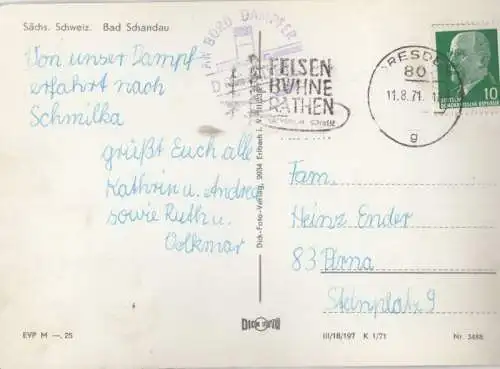 Sächs. Schweiz. Bad Schandau
Von unser Dampf-
erfahrt nach
Schmilka
grüßt Euch alle
Kathrin u. Andrea
sowie Ruth u.
Volkmar
AN BORD DAMPFER
FELSEN
BVHNE
RATHEN
DRESDEN
80
11.8.71
g
10
DEUTSCHE
DEMOKRATISCHE REPUBLIK
Fam.
Heinz Ender
83 Pirna
Steinplatz 9
Dick-Foto-Verlag, 9934 Erlbach i. V.
EVP M —. 25
DICK FOTO
III/18/197 K 1/71
Nr. 3488